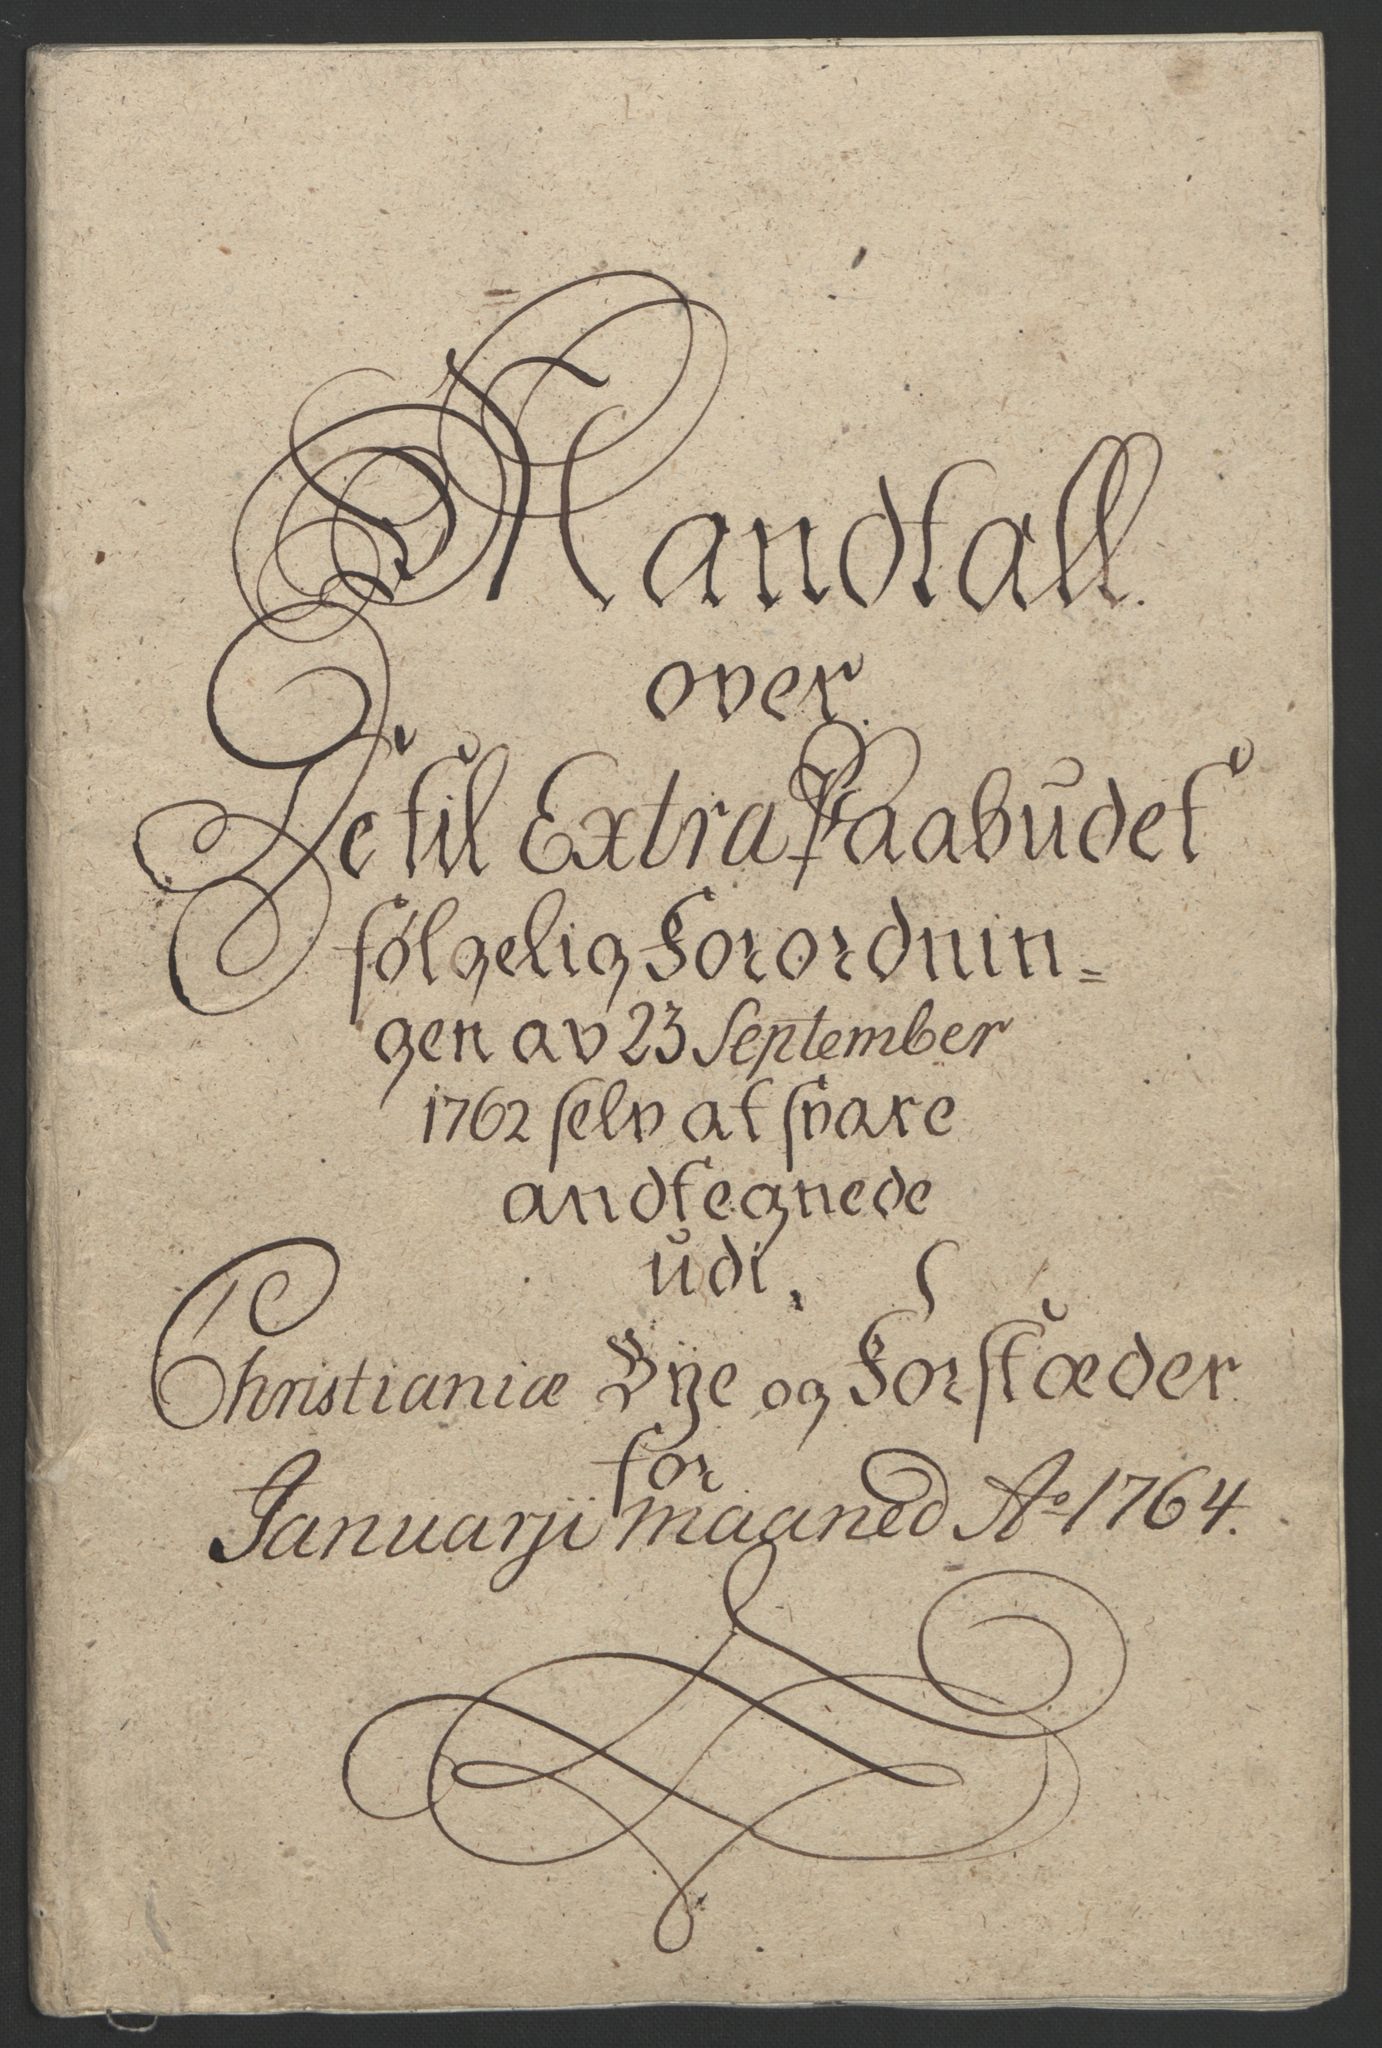 Mandtall.
over
De til Extra Paabudet
følgelig Forordnin=
gen av 23 September
1762 selv at svare
andtegnede
udi,
Christianiæ Bye og Forstæder
for
Januarji Maaned Ao 1764.